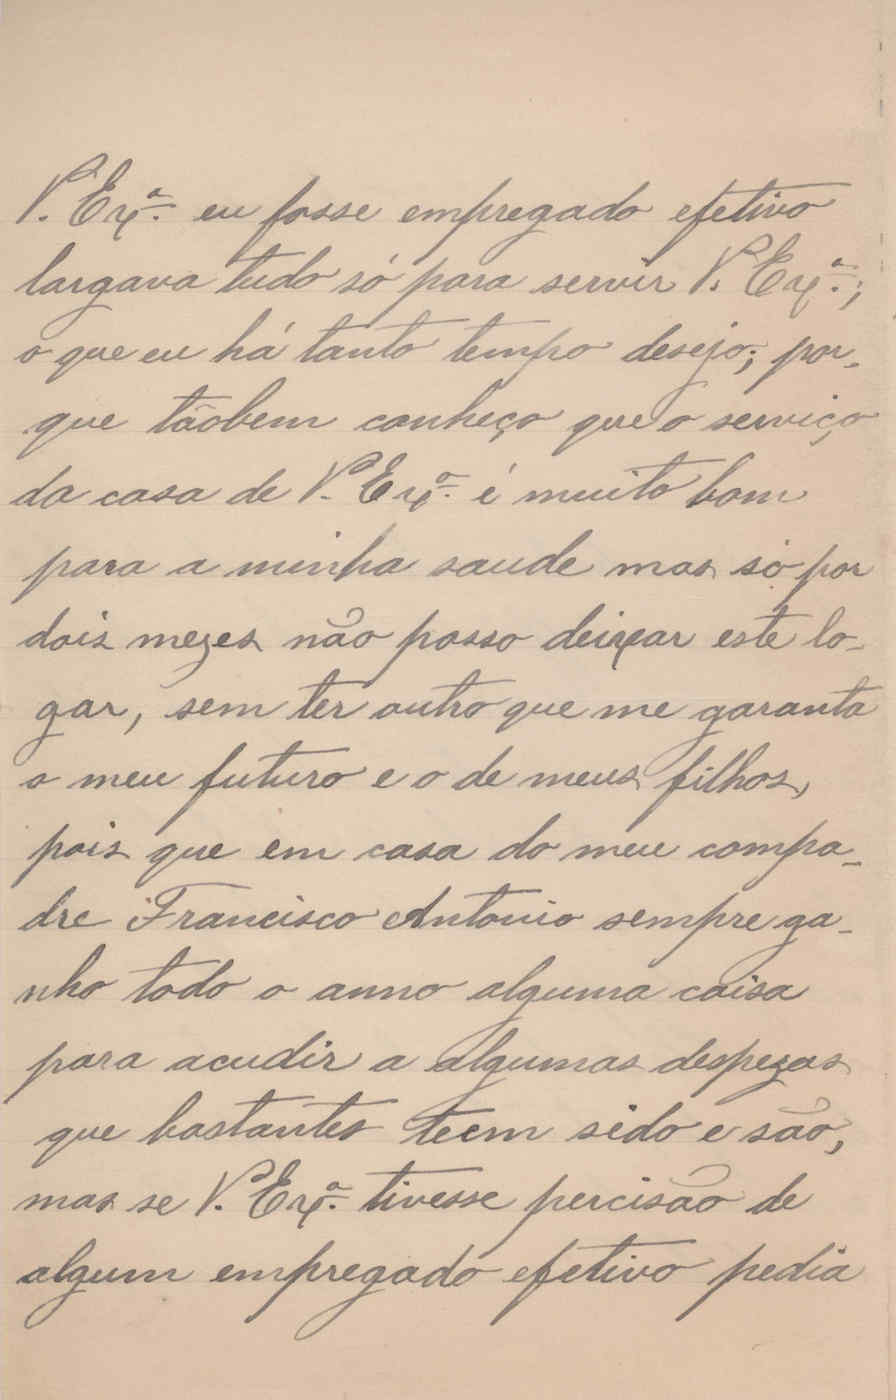 V. Exª. eu fosse empregado efetivo
largava tudo só para servir V. Exª.;
o que eu há tanto tempo desejo; por-
que tãobem conheço que o serviço
da casa de V. Exª. é muito bom
para a minha saude mas só por
dois mezes não posso deixar este lo-
gar, sem ter outro que me garanta
o meu futuro e o de meus filhos,
pois que em casa do meu compa-
dre Francisco Antonio sempre ga-
nho todo o anno alguma coisa
para acudir a algumas despezas
que bastantes teem sido e são,
mas se V. Exª. tivesse percisão de
algum empregado efetivo pedia